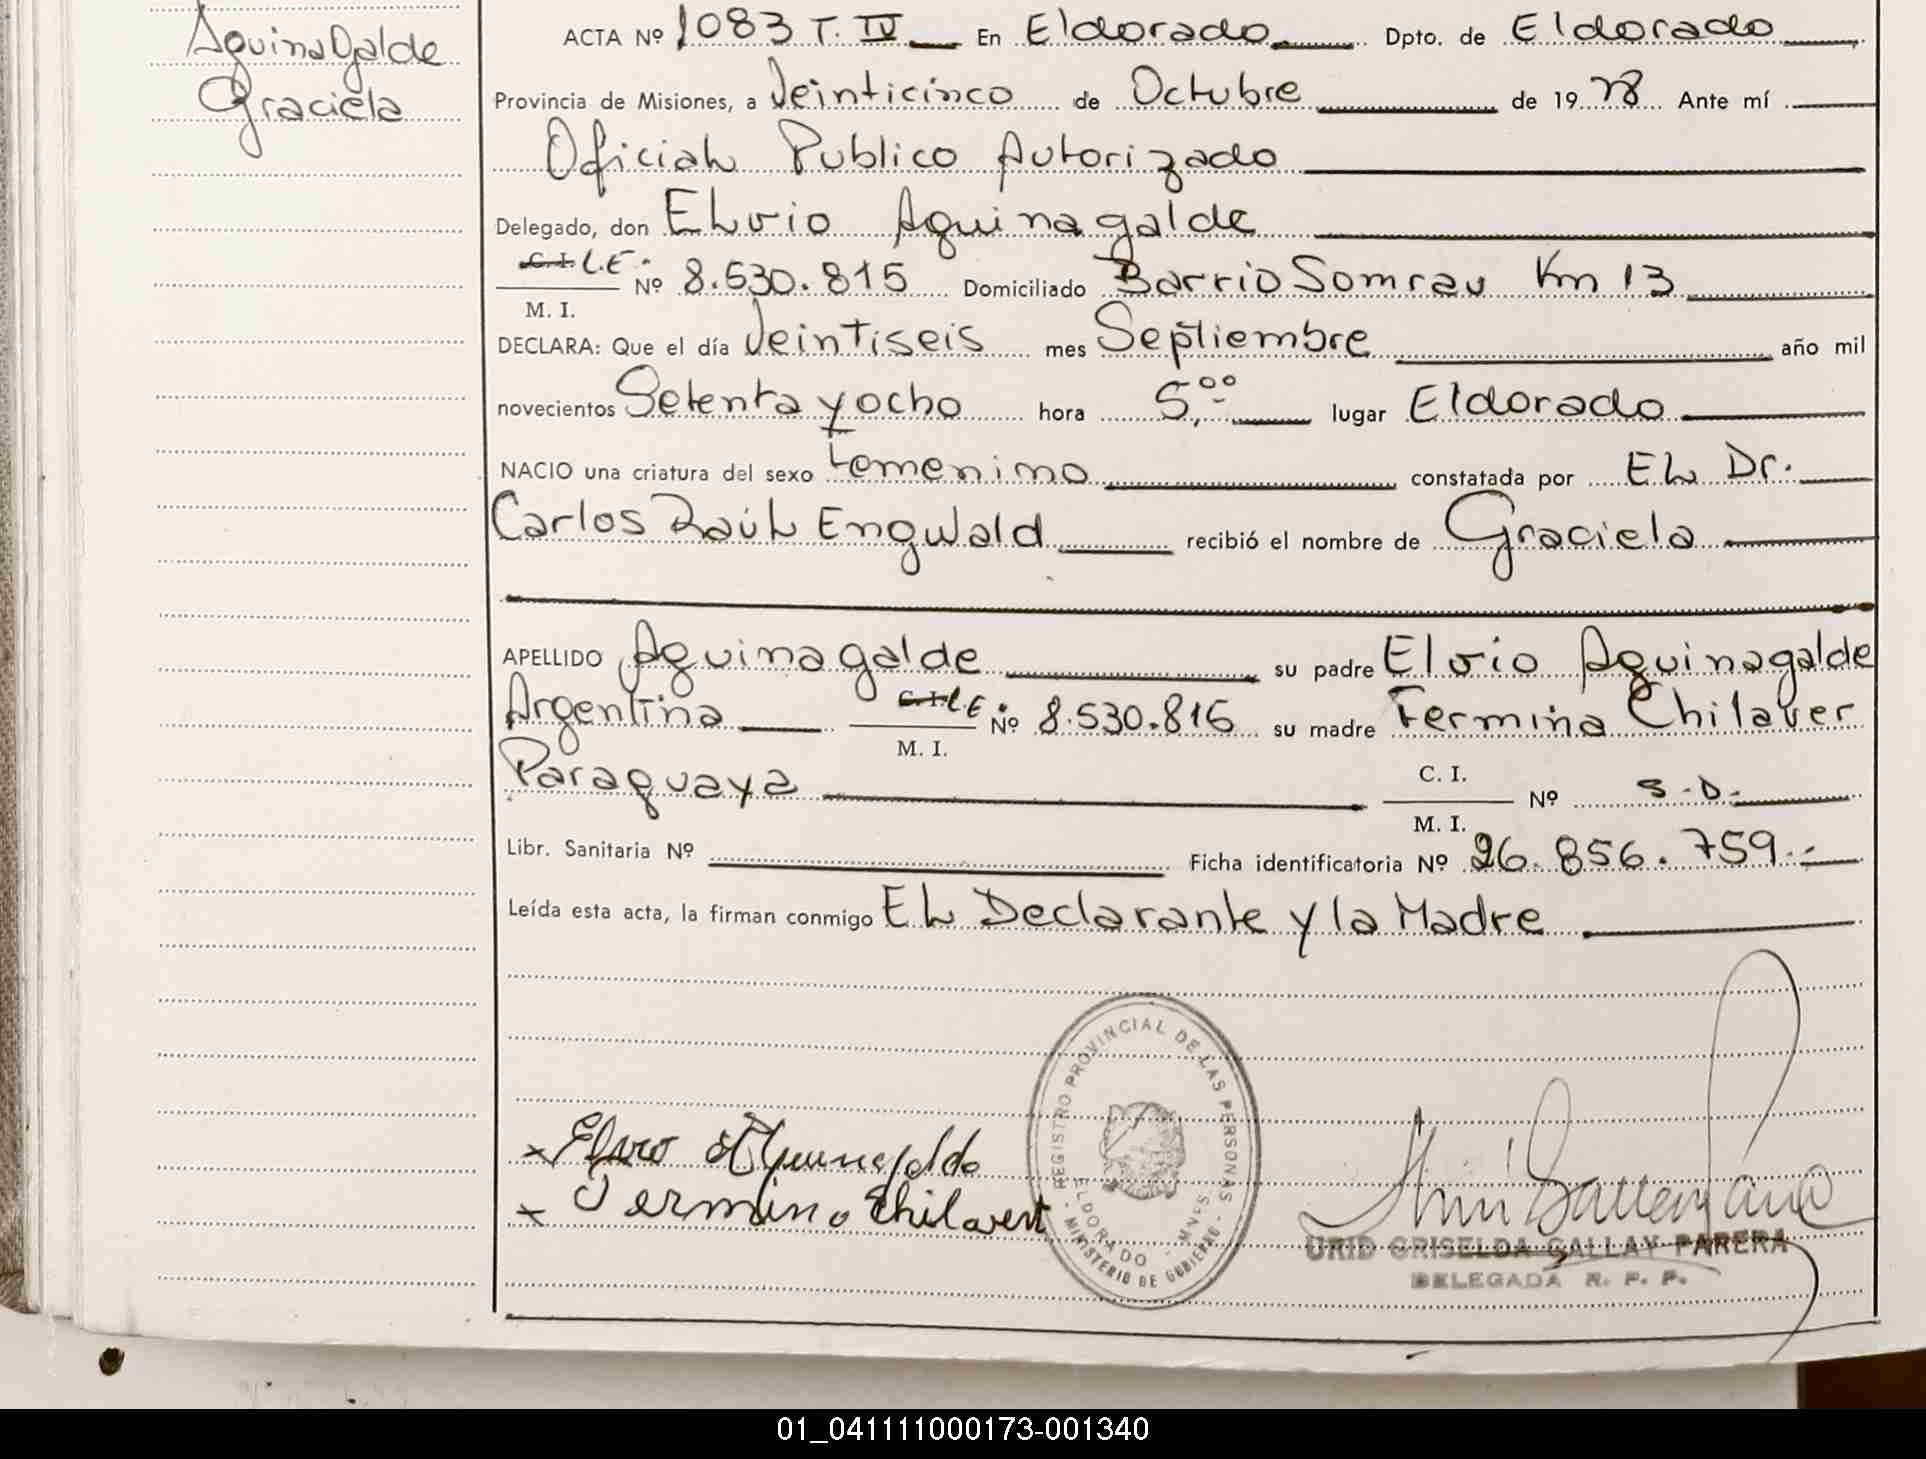 Aguinagalde
Graciela
ACTA Nº 1083 T. IV En Eldorado Dpto. de Eldorado
Provincia de Misiones, a Veinticinco de Octubre de 1978 Ante mí
Oficial Publico Autorizado
Delegado, don Elvio Aguinagalde
C.I. L.E. Nº 8.530.815 Domiciliado Barrio Somrau Km 13
M. I.
DECLARA: Que el día Veintiseis mes Septiembre año mil
novecientos Setenta y ocho hora 5,00 lugar Eldorado
NACIO una criatura del sexo Femenino constatada por El Dr.
Carlos Raúl Engwald recibió el nombre de Graciela
APELLIDO Aguinagalde su padre Elvio Aguinagalde
Argentina C.I. L.E. Nº 8.530.816 su madre Fermina Chilaver
M. I.
Paraguaya C. I. Nº S.D.
M. I.
Libr. Sanitaria Nº Ficha identificatoria Nº 26.856.759.-
Leída esta acta, la firman conmigo El Declarante y la Madre
x Elvio Aguinagalde
x Fermina Chilavert
REGISTRO PROVINCIAL DE LAS PERSONAS
ELDORADO - MNES.
- MINISTERIO DE GOBIERNO -
URID GRISELDA GALLAY PARERA
DELEGADA R. P. P.
01_041111000173-001340